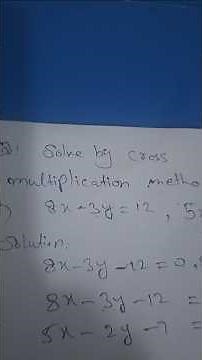 Solve by cross
multiplication metho
8x - 3y = 12 , 5x
Solution:
8x - 3y - 12 = 0 ,
8x - 3y - 12 =
5x - 2y - 7 =